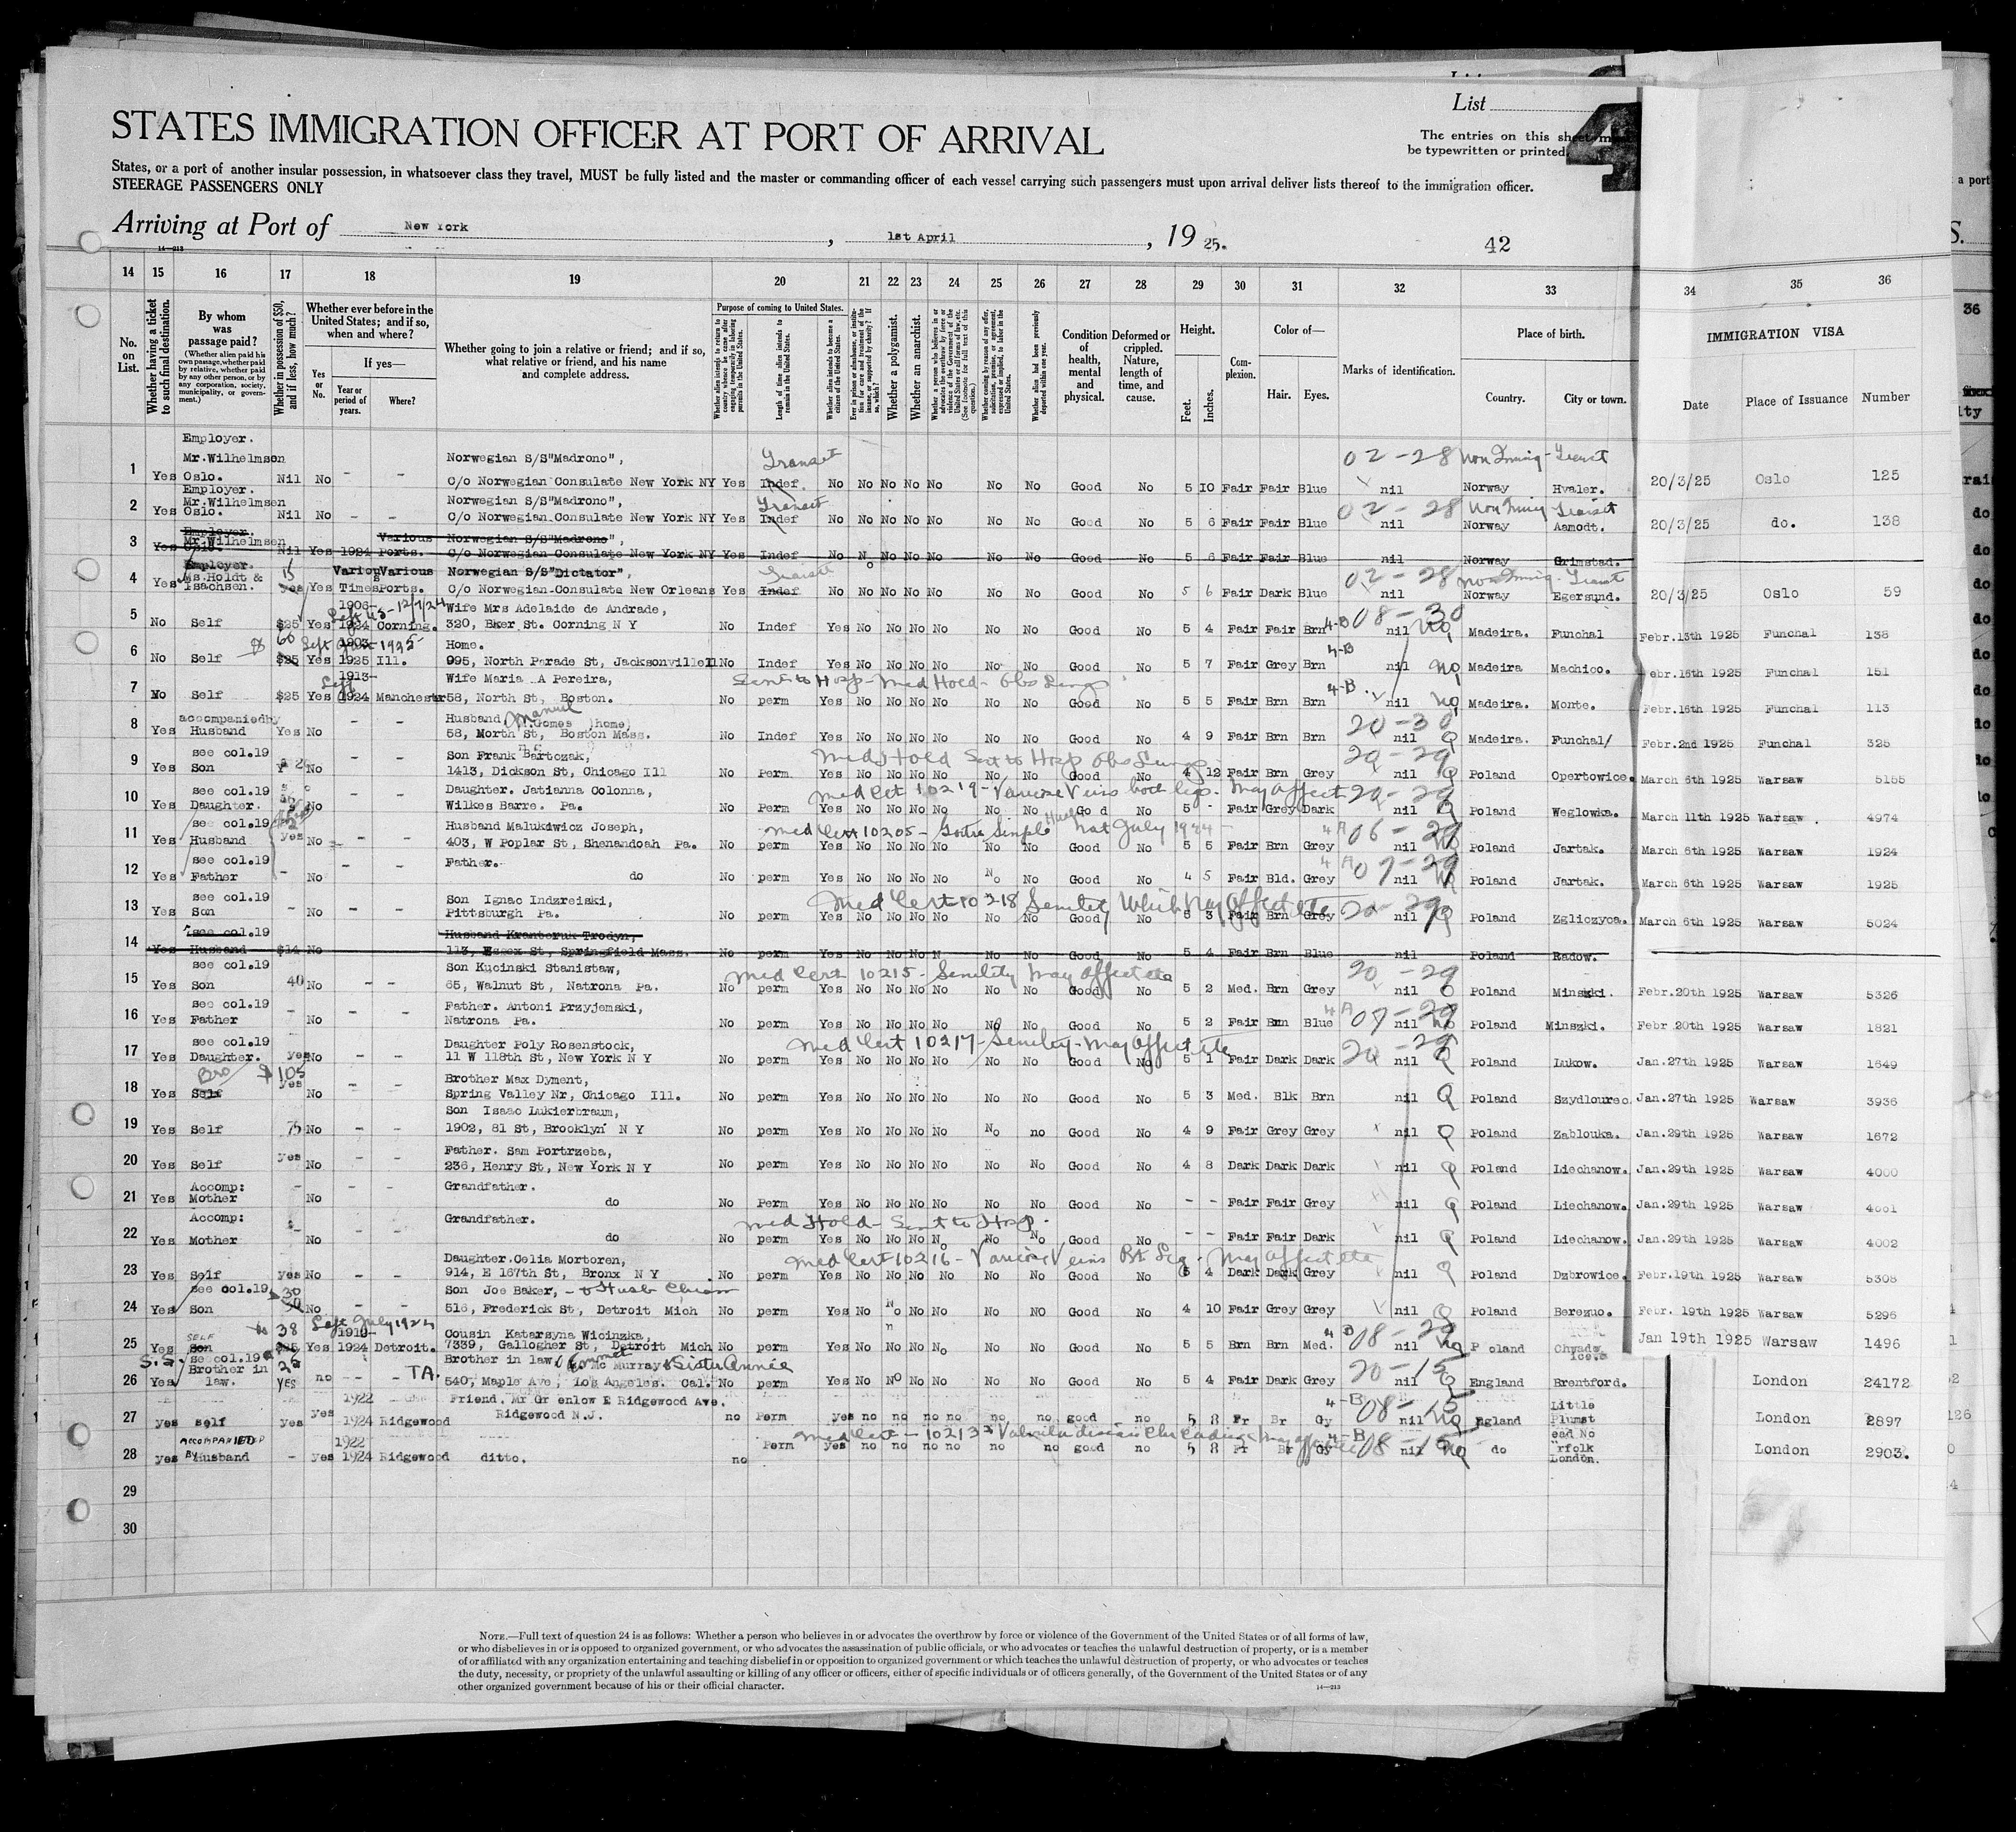 List
4
STATES IMMIGRATION OFFICER AT PORT OF ARRIVAL
The entries on this sheet must
be typewritten or printed.
States, or a port of another insular possession, in whatsoever class they travel, MUST be fully listed and the master or commanding officer of each vessel carrying such passengers must upon arrival deliver lists thereof to the immigration officer.
STEERAGE PASSENGERS ONLY
Arriving at Port of New York, 1st April, 1925.
42
14—213
14 15 16 17 18 19 20 21 22 23 24 25 26 27 28 29 30 31 32 33 34 35 36
No. on List.
Whether having a ticket to such final destination.
By whom was passage paid?
(Whether alien paid his own passage, whether paid by relative, whether paid by any other person, or by any corporation, society, municipality, or government.)
Whether in possession of $50, and if less, how much?
Whether ever before in the United States; and if so, when and where?
Yes or No.
If yes—
Year or period of years.
Where?
Whether going to join a relative or friend; and if so, what relative or friend, and his name and complete address.
Purpose of coming to United States.
Whether alien intends to return to country whence he came after engaging temporarily in laboring pursuits in the United States.
Length of time alien intends to remain in the United States.
Whether alien intends to become a citizen of the United States.
Ever in prison or almshouse, or institution for care and treatment of the insane, or supported by charity? If so, which?
Whether a polygamist.
Whether an anarchist.
Whether a person who believes in or advocates the overthrow by force or violence of the Government of the United States or all forms of law, etc. (See footnote for full text of this question.)
Whether coming by reason of any offer, solicitation, promise, or agreement, expressed or implied, to labor in the United States.
Whether alien had been previously deported within one year.
Condition of health, mental and physical.
Deformed or crippled. Nature, length of time, and cause.
Height.
Feet. Inches.
Complexion.
Color of—
Hair. Eyes.
Marks of identification.
Place of birth.
Country. City or town.
IMMIGRATION VISA
Date Place of Issuance Number
1 Yes Employer. Mr.Wilhelmson Oslo. Nil No - - Norwegian S/S"Madrono",
c/o Norwegian Consulate New York NY Yes Indef. Transit No No No No No No No Good No 5 10 Fair Fair Blue nil 02-28 Non Immig-Transit Norway Hvaler. 20/3/25 Oslo 125
2 Yes Employer. Mr.Wilhelmsen Oslo. Nil No - - Norwegian S/S"Madrono",
C/o Norwegian Consulate New York NY Yes Indef Transit No No No No No No No Good No 5 6 Fair Fair Blue nil 02-28 Non Immig Transit Norway Aamodt. 20/3/25 do. 138
3 Yes Employer. Mr.Wilhelmsen Oslo. Nil Yes 1924 Various Ports. Norwegian S/S"Madrono",
C/o Norwegian Consulate New York NY Yes Indef No No No No No No No Good No 5 6 Fair Fair Blue nil Norway Grimstad.
4 Yes Employer. Ms.Holdt & Isachsen. 15 Yes Yes Various Times Various Ports. Norwegian S/S"Dictator",
C/o Norwegian Consulate New Orleans Yes Indef Transit No No No No No No No Good No 5 6 Fair Dark Blue nil 02-28 Non Immig-Transit Norway Egersund. 20/3/25 Oslo 59
5 No Self $25 Yes 1906- 1924 Left US-12/1/24 Corning. Wife Mrs Adelaide de Andrade,
320, Bker St. Corning N Y No Indef Yes No No No No No No Good No 5 4 Fair Fair Brn 4-B 08-30 nil NQ Madeira. Funchal Febr.13th 1925 Funchal 138
6 No Self $ 60 $25 Yes 1903- 1925 Left 1925 Ill. Home.
995, North Parade St, Jacksonville No Indef Yes No No No No No No Good No 5 7 Fair Grey Brn 4-B nil NQ Madeira Machico. Febr.16th 1925 Funchal 151
7 No Self $25 Yes 1913- 1924 Left Manchestr Wife Maria A Pereira,
58, North St, Boston. No perm Yes No No No No No No Good No 5 5 Fair Brn Brn 4-B nil NQ Madeira. Monte. Febr.16th 1925 Funchal 113
Sent to Hosp-Med Hold-Obs Lungs
8 Yes accompaniedby Husband Yes No - - Husband Manuel Gomes (home)
58, North St, Boston Mass. No Indef Yes No No No No No No Good No 4 9 Fair Brn Brn 20-30 nil Q Madeira. Funchal/ Febr.2nd 1925 Funchal 325
9 Yes see col.19 Son No Son Frank Bartczak,
1413, Dickson St, Chicago Ill No Perm. Yes No No No No No No Good No 4 12 Fair Brn Grey 20-29 nil Q Poland Opertowice. March 6th 1925 Warsaw 5155
Med Hold Sent to Hosp Obs Lungs
10 Yes see col.19 Daughter. No Daughter. Jatianna Colonna,
Wilkes Barre. Pa. No Perm Yes No No No No No No Go d No 5 - Fair Grey Dark 20-29 nil Q Poland Weglowka. March 11th 1925 Warsaw. 4974
Med Cert 10219-Varicose Veins both legs. May affect
11 Yes see col.19 Husband yes No - - Husband Malukiwicz Joseph,
403, W Poplar St, Shenandoah Pa. No perm Yes No No No No No No Good No 5 5 Fair Brn Grey 4A 06-29 nil NQ Poland Jartak. March 6th 1925 Warsaw 1924
Med Cert 10205-Goitre Simple Husb Nat July 1924-
12 Yes see col.19 Father - No - - Father.
do No perm Yes No No No No No No Good No 4 5 Fair Bld. Grey 4A 07-29 nil NQ Poland Jartak. March 6th 1925 Warsaw 1925
13 Yes see col.19 Son - No - - Son Ignac Indzreiski,
Pittsburgh Pa. No perm Yes No No No No No No Good No 5 3 Fair Brn Grey 20-29 nil Q Poland Zgliczyca. March 6th 1925 Warsaw 5024
Med Cert 10218 Senility Which May Affect etc
14 Yes see col.19 Husband $14 No Husband Kranteruk Trodyn,
113, Essex St, Springfield Mass. No perm Yes No No No N No No Good No 5 4 Fair Brn Blue nil Poland Radow.
15 Yes see col.19 Son 40 No - - Son Kucinski Stanistaw,
65, Walnut St, Natrona Pa. No perm Yes No No No No No No Good No 5 2 Med. Brn Grey 20-29 nil Q Poland Minszki. Febr.20th 1925 Warsaw 5326
Med Cert 10215-Senility May affect etc
16 Yes see col.19 Father - No - - Father. Antoni Przyjemski,
Natrona Pa. No perm Yes No No No No No No Good No 5 2 Fair Brn Blue 4A 07-29 nil NQ Poland Minszki. Febr.20th 1925 Warsaw 1821
17 Yes see col.19 Daughter. yes No - - Daughter Poly Rosenstock,
11 W 118th St, New York N Y No perm Yes No No No No No No Good No 5 1 Fair Dark Dark 20-29 nil Q Poland Lukow. Jan.27th 1925 Warsaw 1649
Med Cert 10217-Senility-May affect etc
18 Yes Bro Self $105 yes No - - Brother Max Dyment,
Spring Valley Nr, Chicago Ill. No perm Yes No No No No No No Good No 5 3 Med. Blk Brn nil Q Poland Szydlourec. Jan.27th 1925 Warsaw 3936
19 Yes Self 75 No - - Son Isaac Lukierbraum,
1902, 81 St, Brooklyn N Y No perm Yes No No No No No no Good No 4 9 Fair Grey Grey nil Q Poland Zablouka. Jan.29th 1925 Warsaw 1672
20 Yes Self yes No - - Father. Sam Portrzeba,
236, Henry St, New York N Y No perm Yes No No No No No No Good No 4 8 Dark Dark Dark nil Q Poland Liechanow. Jan.29th 1925 Warsaw 4000
21 Yes Accomp: Mother - No - - Grandfather.
do No Perm Yes No No No No No No Good No - - Fair Fair Grey nil Q Poland Liechanow. Jan.29th 1925 Warsaw 4001
22 Yes Accomp: Mother - No - - Grandfather.
do No perm Yes No No No No No No Good No - - Fair Fair Dark nil Q Poland Liechanow. Jan.29th 1925 Warsaw 4002
Med Hold-Sent to Hosp.
23 Yes Self yes No - - Daughter.Celia Mortoren,
914, E 167th St, Bronx N Y No perm Yes No No No No No No Good No 5 4 Dark Dark Grey nil Q Poland Dzbrowice. Febr.19th 1925 Warsaw 5308
Med Cert 10216-Varicose Veins Rt Leg. May affect etc
24 Yes see col.19 Son 30 No - - Son Joe Baker,
516, Frederick St, Detroit Mich No perm Yes No No No No No NO Good No 4 10 Fair Grey Grey nil Q Poland Berezuo. Febr. 19th 1925 Warsaw 5296
25 Yes SELF Son 38 $25 Yes 1910- 1924 Left July 1924 Detroit. Cousin Katarzyna Wicinzka,
7339, Gallogher St, Detroit Mich No perm Yes No No No No No No Good No 5 5 Brn Brn Med. 4B 08-29 nil NQ P oland Jan 19th 1925 Warsaw 1496
26 S.S. Yes se col.19 Brother in law. 25 YES no - - TA. Brother in law, Mc Murray & Sister Annie
540, Maple Ave, Los Angeles. Cal. No perm Yes No NO No No No No Good No 5 4 Fair Dark Grey 20-15 nil Q England Brentford. London 24172
27 yes self yes yes 1922 1924 Ridgewood Friend. Mr Gr enlow E Ridgewood Ave.
Ridgewood N.J. no Perm yes no no no no no no good no 5 8 Fr Br Gy 4-B 08-15 nil NQ England Little Plumst ead No rfolk London 2897
28 yes ACCOMPANIED By Husband - yes 1922 1924 Ridgewood ditto. no Perm yes no no no no no no good no 5 8 Fr Br Gy 4-B 08-15 nil NQ do London. London 2903.
29
30
NOTE.—Full text of question 24 is as follows: Whether a person who believes in or advocates the overthrow by force or violence of the Government of the United States or of all forms of law,
or who disbelieves in or is opposed to organized government, or who advocates the assassination of public officials, or who advocates or teaches the unlawful destruction of property, or is a member
of or affiliated with any organization entertaining and teaching disbelief in or opposition to organized government or which teaches the unlawful destruction of property, or who advocates or teaches
the duty, necessity, or propriety of the unlawful assaulting or killing of any officer or officers, either of specific individuals or of officers generally, of the Government of the United States or of any
other organized government because of his or their official character.
14—213